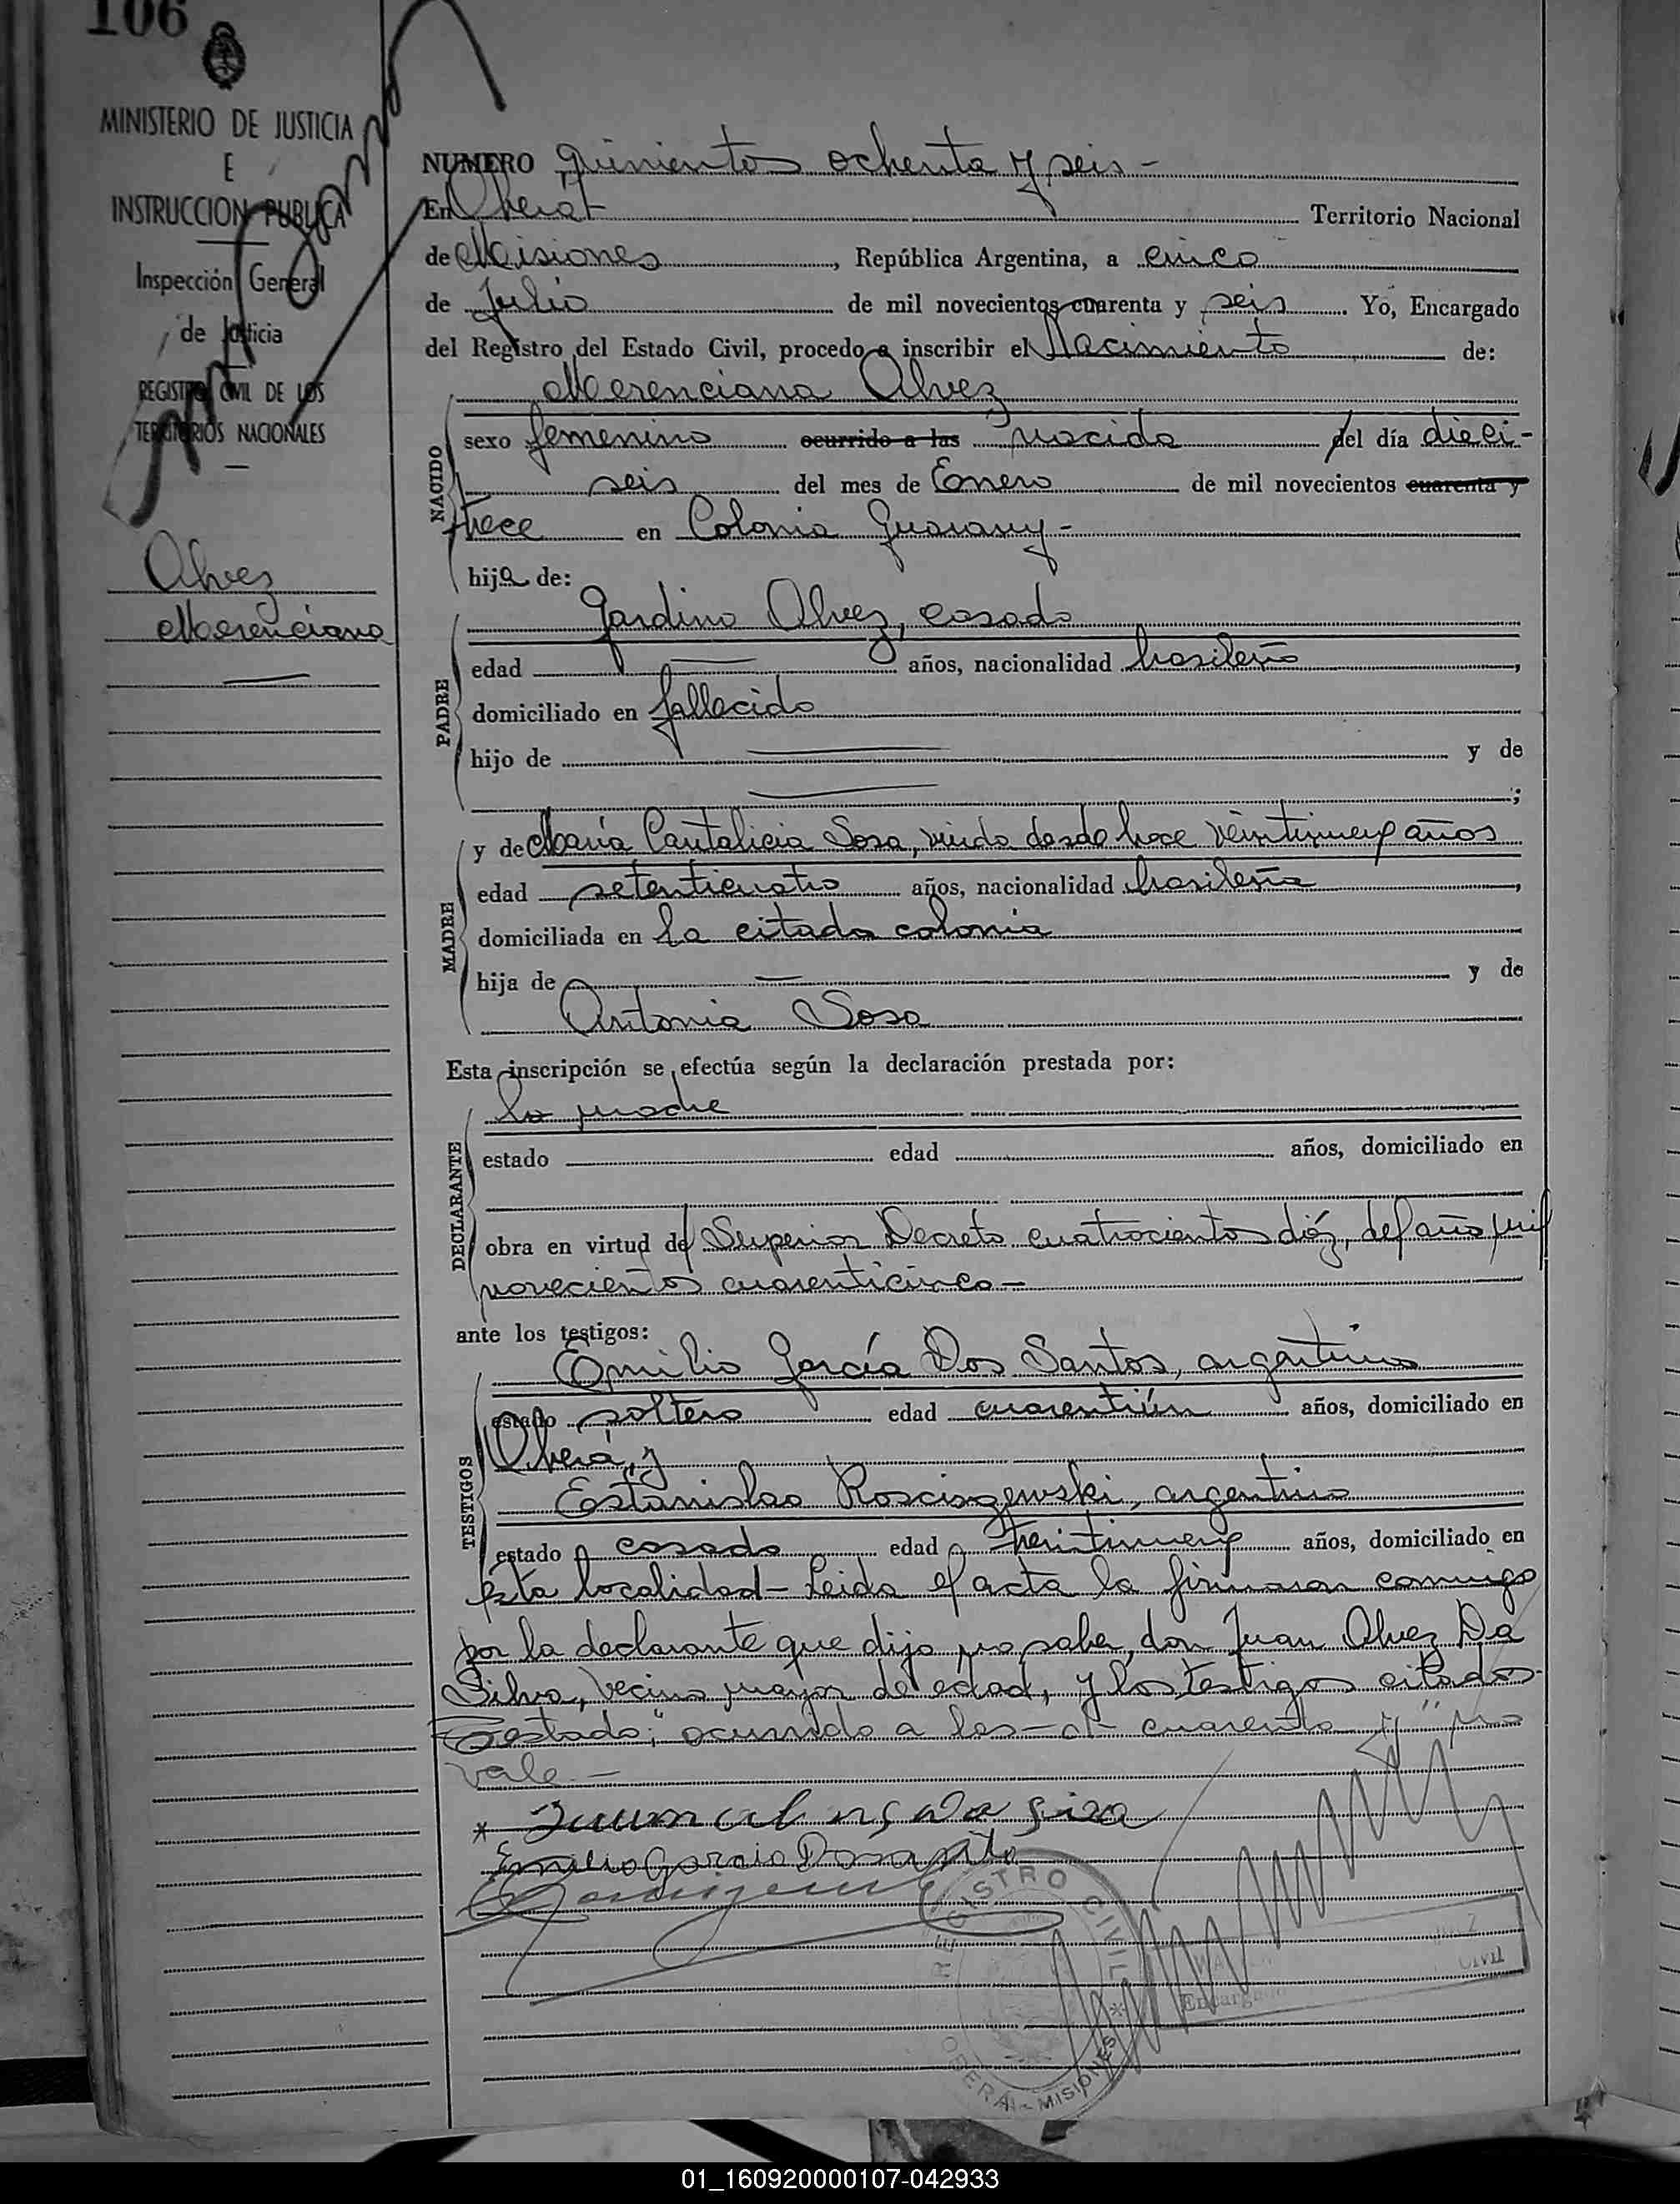 106
MINISTERIO DE JUSTICIA
E
INSTRUCCION PUBLICA
Inspección General
de Justicia
REGISTRO CIVIL DE LOS
TERRITORIOS NACIONALES
Alvez
Merenciana
NUMERO quinientos ochenta y seis -
En Oberá Territorio Nacional
de Misiones, República Argentina, a cinco
de Julio de mil novecientos cuarenta y seis. Yo, Encargado
del Registro del Estado Civil, procedo a inscribir el Nacimiento de:
Merenciana Alvez
NACIDO
sexo femenino ocurrido a las nacida del día dieci-
seis del mes de Enero de mil novecientos cuarenta y
trece en Colonia Guarany -
hija de:
PADRE
Jardino Alvez, casado
edad — años, nacionalidad brasileño,
domiciliado en fallecido
hijo de — y de
— ;
MADRE
y de María Cantalicia Sosa, viuda desde hace veintinueve años
edad setenticuatro años, nacionalidad brasileña,
domiciliada en la citada colonia
hija de — y de
Antonia Sosa
Esta inscripción se efectúa según la declaración prestada por:
DECLARANTE
la madre
estado edad años, domiciliado en
obra en virtud del Superior Decreto cuatrocientos diéz, del año mil
novecientos cuarenticinco -
ante los testigos:
TESTIGOS
Emilio García Dos Santos, argentino
estado soltero edad cuarentiún años, domiciliado en
Oberá, y
Estanislao Rosciszewski, argentino
estado casado edad treintinueve años, domiciliado en
esta localidad - Leida el acta la firmaron conmigo
por la declarante que dijo no saber, don Juan Alvez Da
Silva, vecino mayor de edad, y los testigos citados -
Testado: "ocurrido a las - a - cuarenta y" no
vale. -
Emilio Garcia Dos Santos
REGISTRO CIVIL
OBERA - MISIONES
Encargado
CIVIL
01_160920000107-042933